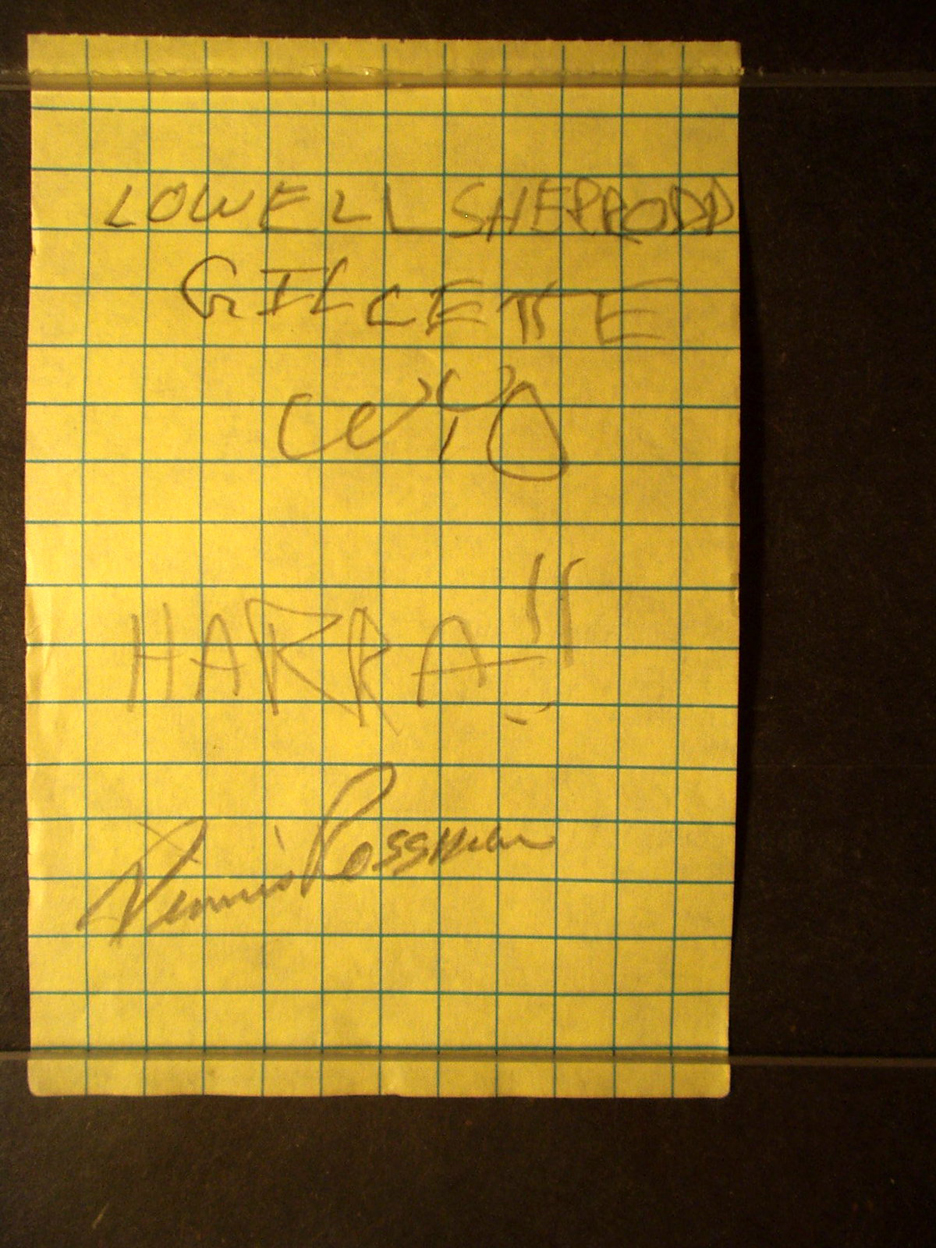 LOWELL SHERRODD
GILLETTE
WYO
HARRA!!
Dennis Rossman